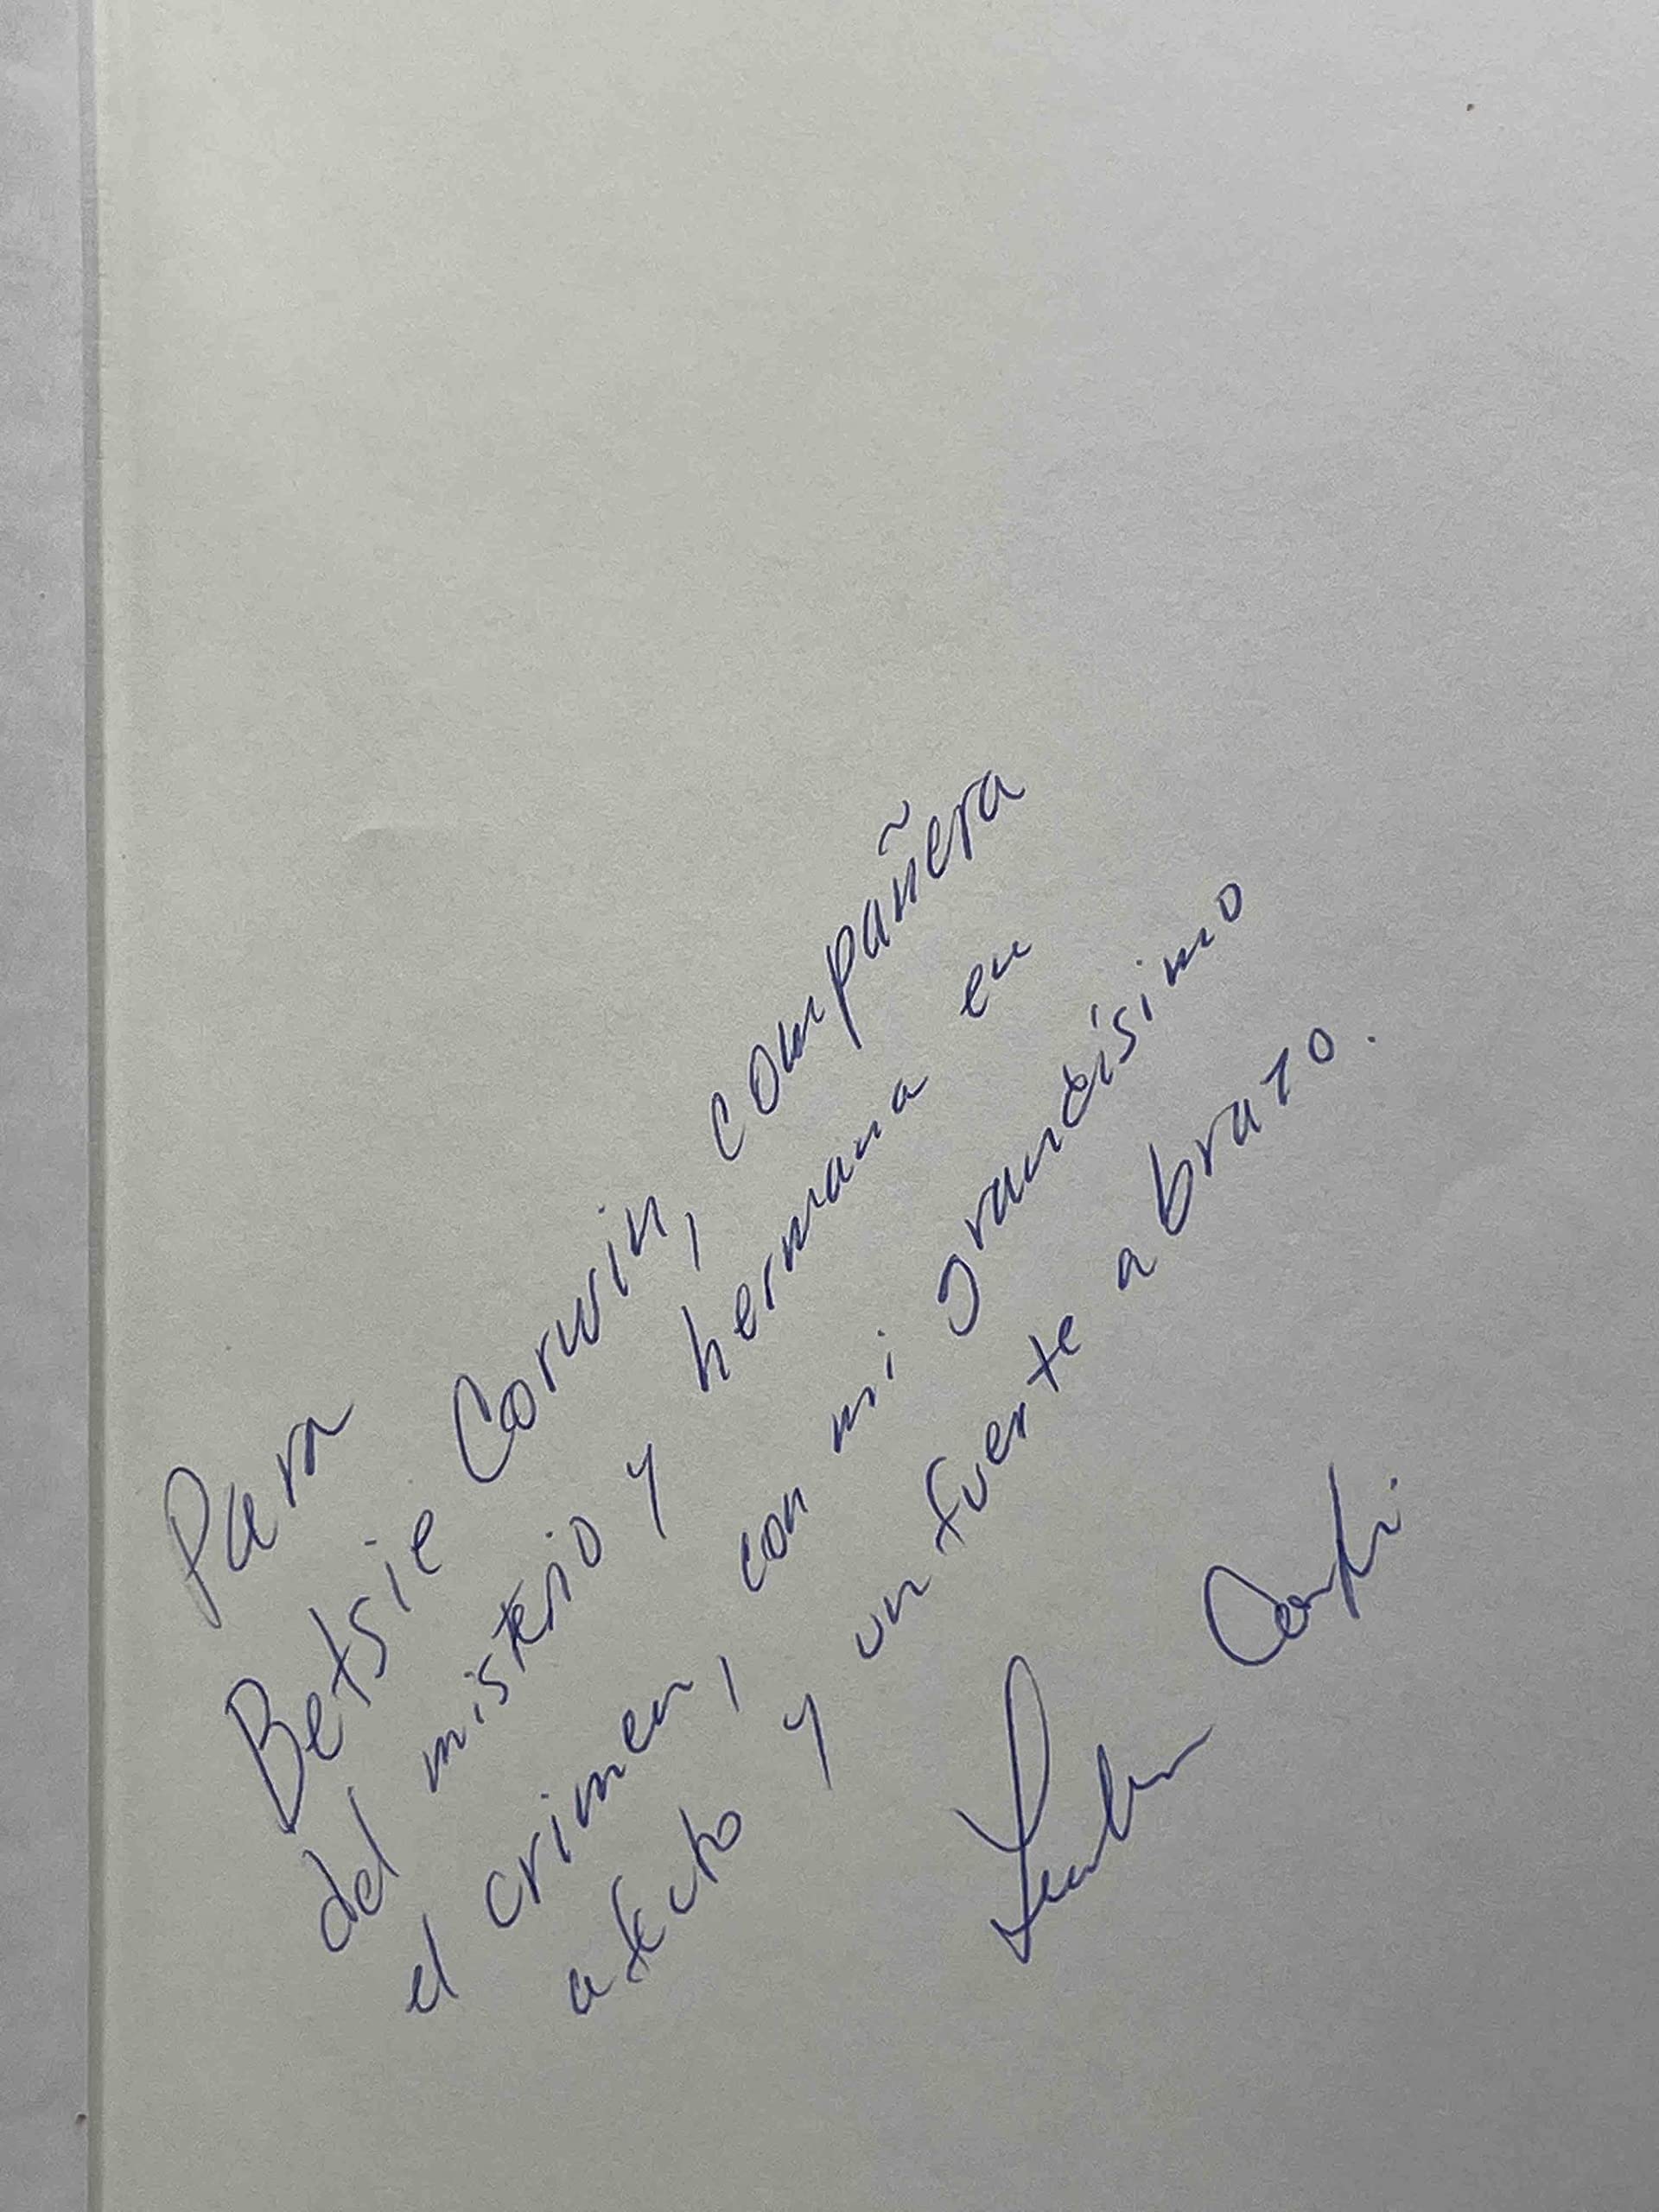 Para
Betsie Corwin, compañera
del misterio y hermana en
el crimen, con mi grandísimo
afecto y un fuerte abrazo.